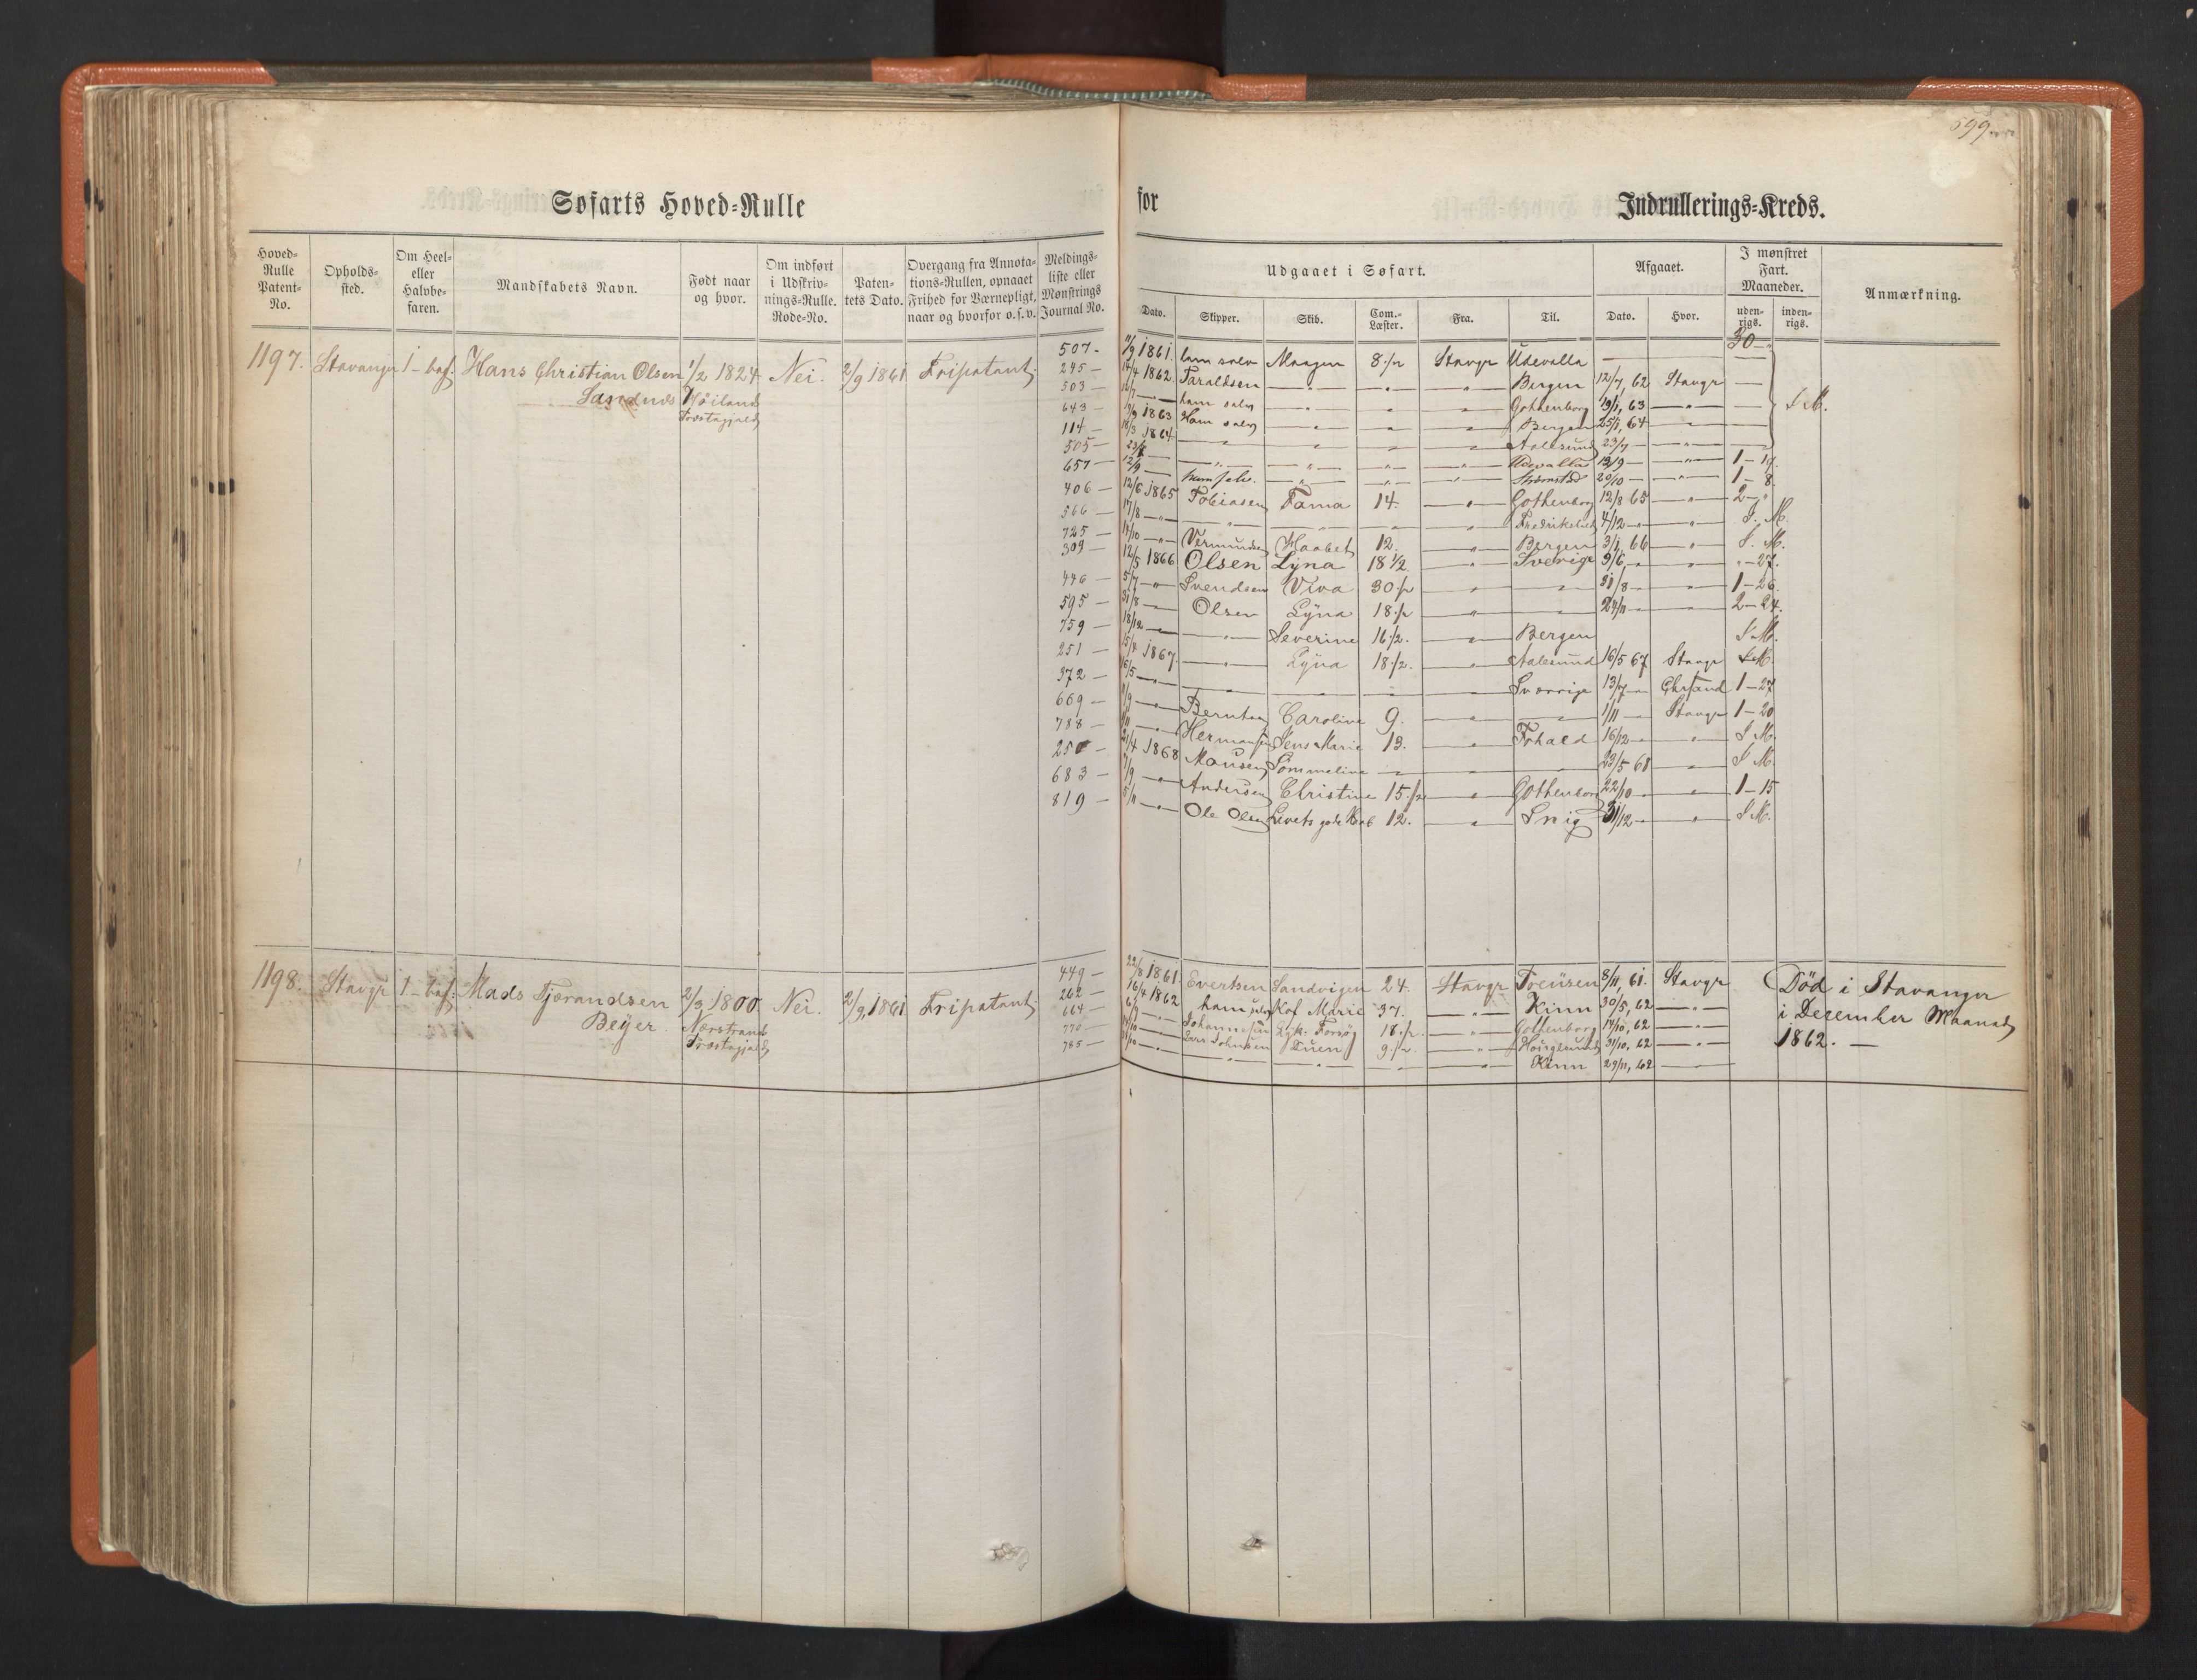 599
Søfarts Hoved-Rulle for Indrullerings-Kreds.
Hoved-Rulle Patent-No.
Opholds-sted.
Om Heel- eller Halvbe-faren.
Mandskabets Navn.
Født naar og hvor.
Om indført i Udskriv-nings-Rulle. Rode-No.
Paten-tets Dato.
Overgang fra Annota-tions-Rullen, opnaaet Frihed for Værnepligt, naar og hvorfor o. s. v.
Meldings-liste eller Mønstrings Journal No.
Udgaaet i Søfart.
Afgaaet.
I mønstret Fart. Maaneder.
Anmærkning.
Dato. Skipper. Skib. Com.-Læster. Fra. Til. Dato. Hvor. uden-rigs. inden-rigs.
30
1197. Stavanger 1-bef: Hans Christian Olsen 1/2 1824 Nei. 2/9 1861 Fripatent
Sandnes Høiland
Præstegjeld
507 - 11/9 1861. ham selv Maagen 8 1/2 Stavgr Udevalla —
245 - 14/4 1862. Taraldsen — " — — " — " Bergen 12/7, 62 Stavgr —
503 - ham selv — " — — " — " Gothenborg 19/1, 63 — " — —
643 - 1863 Ham selv — " — — " — " Bergen 25/1, 64 — " — — S M.
114 - 18/3 1864 — " — — " — — " — " Aalesund 23/7 — — " —
505 - — " — — " — " — " Udevalla 13/9 — — " — 1-17.
657 - 12/9 — ham selv. — " — " — " Strømstad 20/10 — — " — 1-8
406 - 12/6 1865 Tobiasen Fama 14. — " Gothenborg 12/8 65 — " — 2 - "
566 - 17/8 — " — — " — — — " Fredrikshald 4/12 — " — " — S. M.
725 - 14/10 — " — Vermundsen Haabet 12. — " Bergen 3/1 66 — " — S. M.
309 - 12/5 1866 Olsen Lÿna 18 1/2 — " Sverige 9/6 — " — " — " - 27.
446 - 5/7 — " Svendsen Viva 30 1/2 — " — " — 31/8 — — " — 1-26
595 - 31/8 — Olsen Lÿna 18 1/2 " — 24/11 — 2-24.
759 - 18/12 — " — Severine 16 1/2. — " Bergen S M.
251 - 15/4 1867. — " — Lÿna 18 1/2. — " Aalesund 16/5 67 Stavgr S M.
372 - 16/5 — " — — — — Sverrige 13/7 — Chrsand 1-27
669 - 9/9 — " Berntsen Caroline 9. — " — 1/11 — Stavgr 1-20
788 - Hermansen Jens Marie 13. — " Frhald 16/12 — " S M.
250 - 21/4 1868 Monsen Sommeline — — — 23/5 68 — S M.
683 - 7/9 — " Andersen Christine 15 1/2 — " Gothenborg 22/10 — " 1-15
819 - 5/11 — " Ole Olsen Livets gode Haab 12. — " Snig 31/12 — " S M.
1198. Stavgr 1-bef: Mads Tjerandsen 2/3 1800. Nei. 2/9, 1861 Fripatent
Beÿer. Nærstrand
Præstegjeld
449 - 22/8 1861. Evertsen Sandvigen 24. Stavgr 8/11, 61. Stavgr Död i Stavanger
262 - 16/4 1862 ham selv Kof Marie 37. — " — Kinn 30/5, 62 — " — i December Maaned
664 - Johannesen Forsøg 18 1/2. — " — Gothenborg 14/10, 62 — " — 1862. —
770 - Lars Johnsen Duen 9 1/2. — " — 31/10, 62 — " —
785 - — " — — " — — " — Kinn 29/11, 62